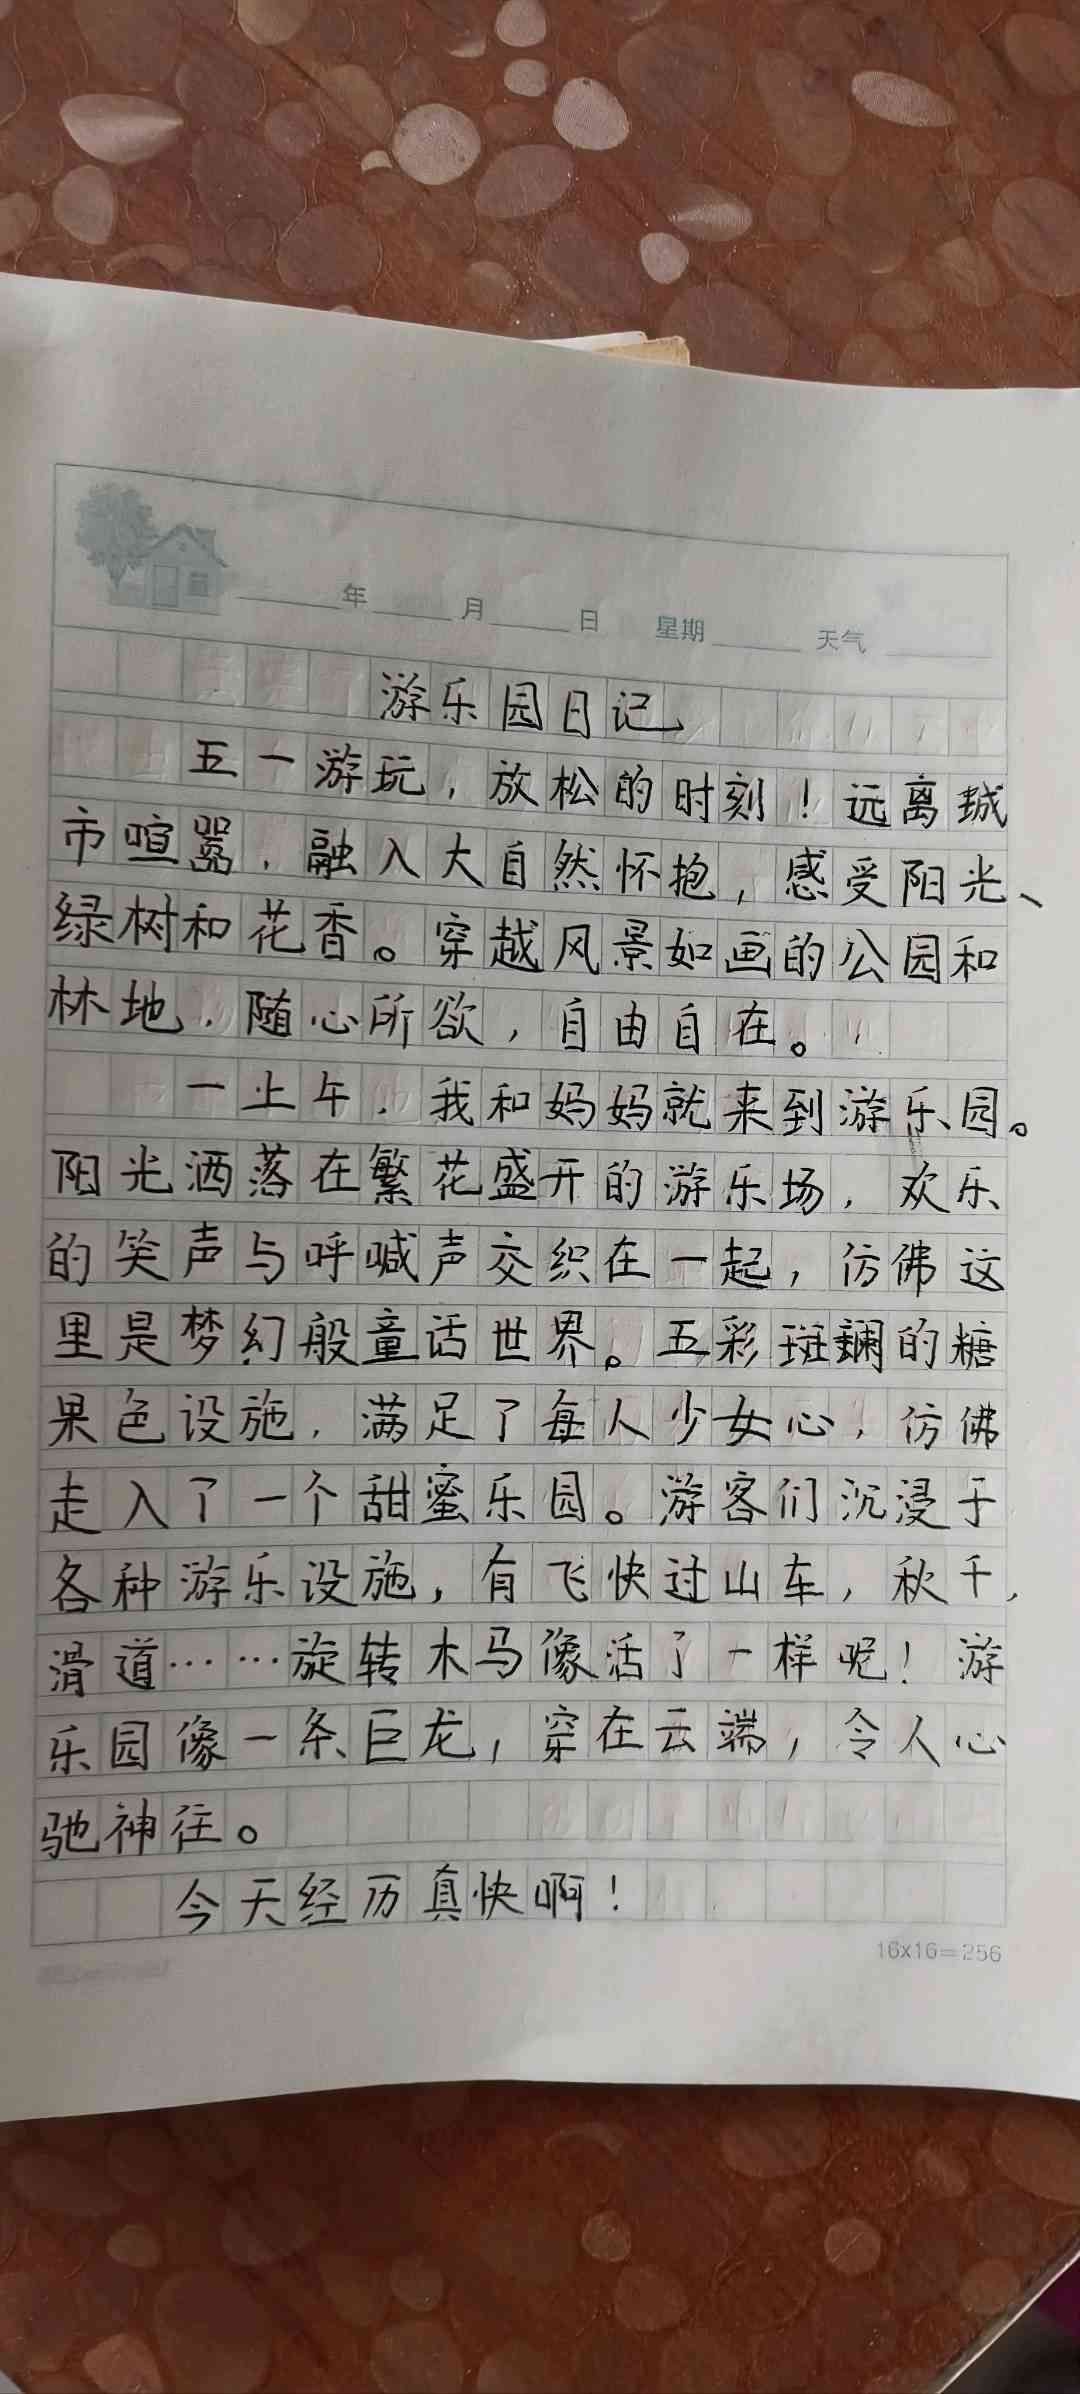 年 月 日 星期 天气
游乐园日记
五一游玩，放松的时刻！远离城
市喧嚣，融入大自然怀抱，感受阳光、
绿树和花香。穿越风景如画的公园和
林地，随心所欲，自由自在。
一上午，我和妈妈就来到游乐园。
阳光洒落在繁花盛开的游乐场，欢乐
的笑声与呼喊声交织在一起，仿佛这
里是梦幻般童话世界。五彩斑斓的糖
果色设施，满足了每人少女心，仿佛
走入了一个甜蜜乐园。游客们沉浸于
各种游乐设施，有飞快过山车，秋千，
滑道……旋转木马像活了一样呢！游
乐园像一条巨龙，穿在云端，令人心
驰神往。
今天经历真快啊！
16x16=256